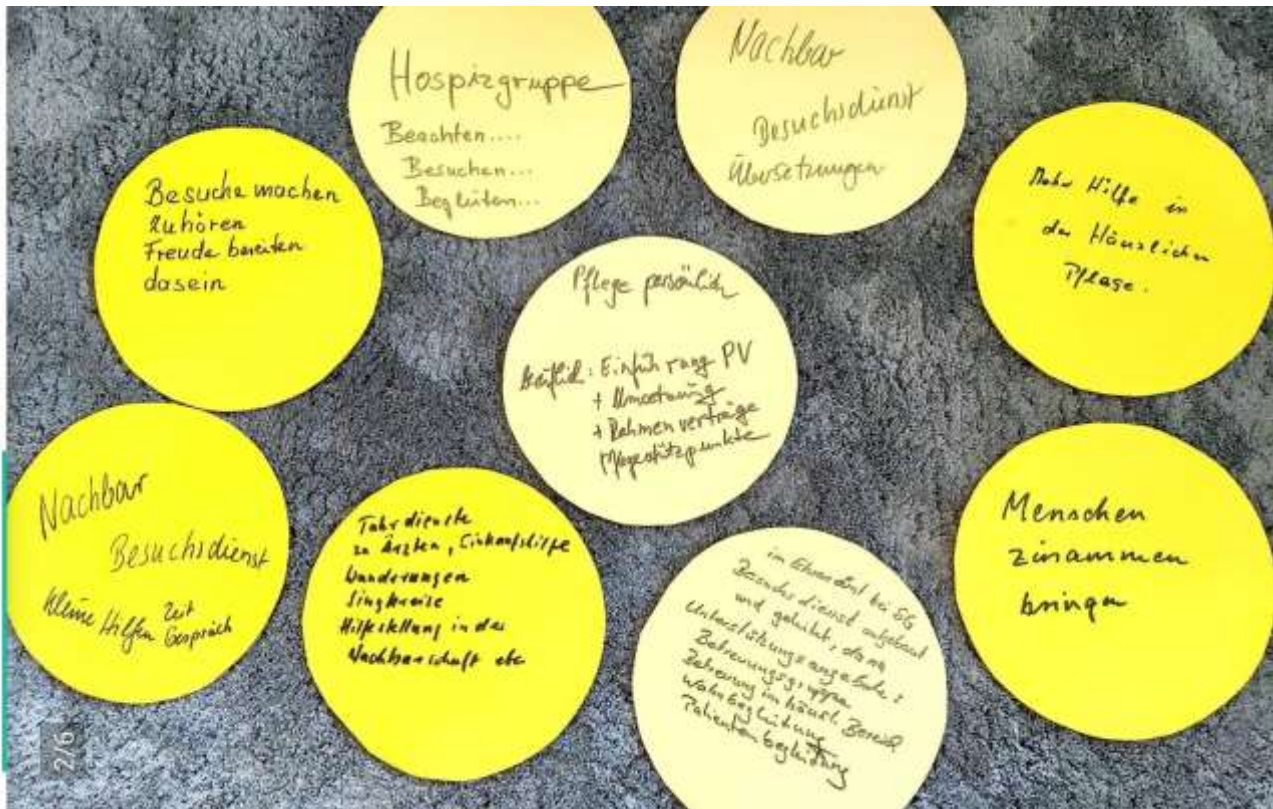 Hospizgruppe
Beachten....
Besuchen...
Begleiten...
Nachbar
Besuchsdienst
Übersetzungen
Besuche machen
Zuhören
Freude bereiten
dasein
Mehr Hilfe in
der Häuslichen
Pflege.
Pflege persönlich
beruflich: Einführung PV
+ Umsetzung
+ Rahmenverträge
Pflegestützpunkte
Nachbar
Besuchsdienst
Kleine Hilfen Zeit
Gespräch
Fahrdienste
zu Ärzten, Einkaufshilfe
Wanderungen
Singkreise
Hilfestellung in der
Nachbarschaft etc
im Ehrenamt bei
Besuchsdienst aufgebaut
und geleitet, dann
Unterstützungsangebote:
Betreuungsgruppe
Betreuung im häusl. Bereich
Wohnbegleitung
Patientenbegleitung
Menschen
zusammen
bringen
2/6